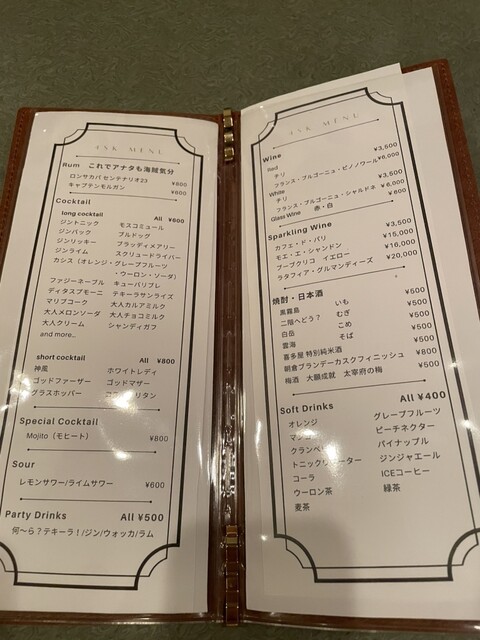 ASK MENU
Rum これでアナタも海賊気分
ロンサカパ センテナリオ23 ¥800
キャプテンモルガン ¥600
Cocktail
long cocktail All ¥600
ジントニック モスコミュール
ジンバック ブルドッグ
ジンリッキー ブラッディメアリー
ジンライム スクリュードライバー
カシス（オレンジ・グレープフルーツ
・ウーロン・ソーダ）
ファジーネーブル キューバリブレ
ディタスプモーニ テキーラサンライズ
マリブコーク 大人カルアミルク
大人メロンソーダ 大人チョコミルク
大人クリーム シャンディガフ
and more..
short cocktail All ¥800
神風 ホワイトレディ
ゴッドファーザー ゴッドマザー
グラスホッパー リタン
Special Cocktail
Mojito（モヒート） ¥800
Sour
レモンサワー/ライムサワー ¥600
Party Drinks All ¥500
何〜ら？テキーラ！/ジン/ウォッカ/ラム
ASK MENU
Wine
Red
チリ ¥3,500
フランス・ブルゴーニュ・ピノノワール ¥6,000
White
チリ ¥3,500
フランス・ブルゴーニュ・シャルドネ ¥6,000
Glass Wine 赤・白 ¥800
Sparkling Wine
カフェ・ド・パリ ¥3,500
モエ・エ・シャンドン ¥15,000
ブーブクリコ イエロー ¥16,000
ラタフィア・グルマンディーズ ¥20,000
焼酎・日本酒
黒霧島 いも ¥500
二階へどう？ むぎ ¥500
白岳 こめ ¥500
雲海 そば ¥500
喜多屋 特別純米酒
朝倉ブランデーカスクフィニッシュ ¥800
梅酒 大願成就 太宰府の梅 ¥500
Soft Drinks All ¥400
オレンジ グレープフルーツ
マンゴ ピーチネクター
クランベ パイナップル
トニックウォーター ジンジャエール
コーラ ICEコーヒー
ウーロン茶 緑茶
麦茶